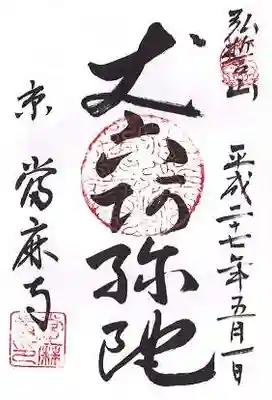 弘誓山
平成二十七年五月一日
丈六阿弥陀
京 當麻寺